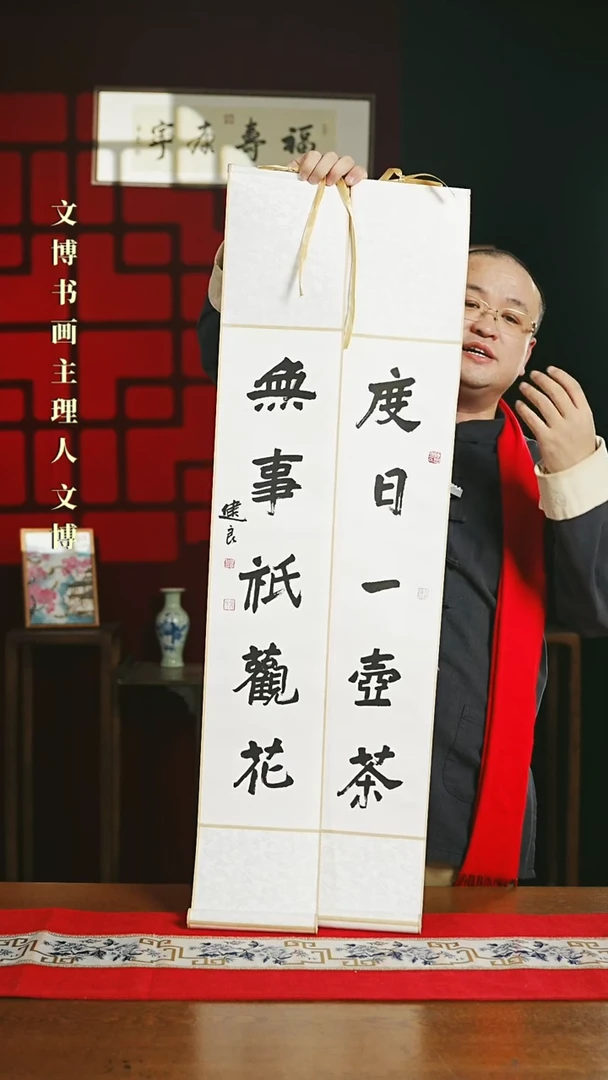 福壽康寧
文博书画主理人文博
度日一壺茶
無事祇觀花
建良